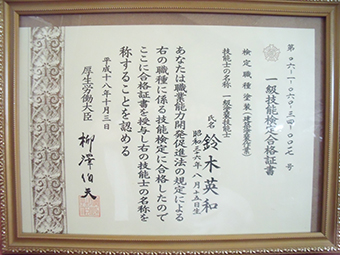 第06-1-060-34-0027号
一級技能検定合格証書
検定職種 塗装(建築塗装作業)
技能士の名称 一級塗装技能士
氏名 鈴木英和
昭和三六年八月十五日生
あなたは職業能力開発促進法の規定による
右の職種に係る技能検定に合格したので
ここに合格証書を授与し右の技能士の名称を
称することを認める
平成十八年十月三日
厚生労働大臣
柳澤伯夫